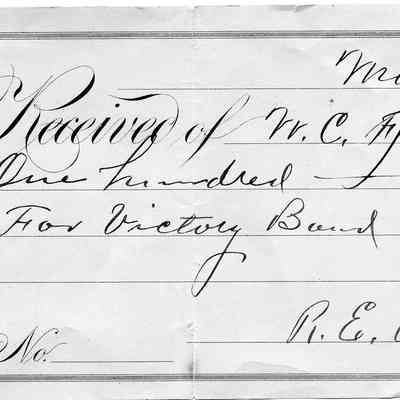 Received of W. C.
One hundred
For Victory Bond
R. E.
No.